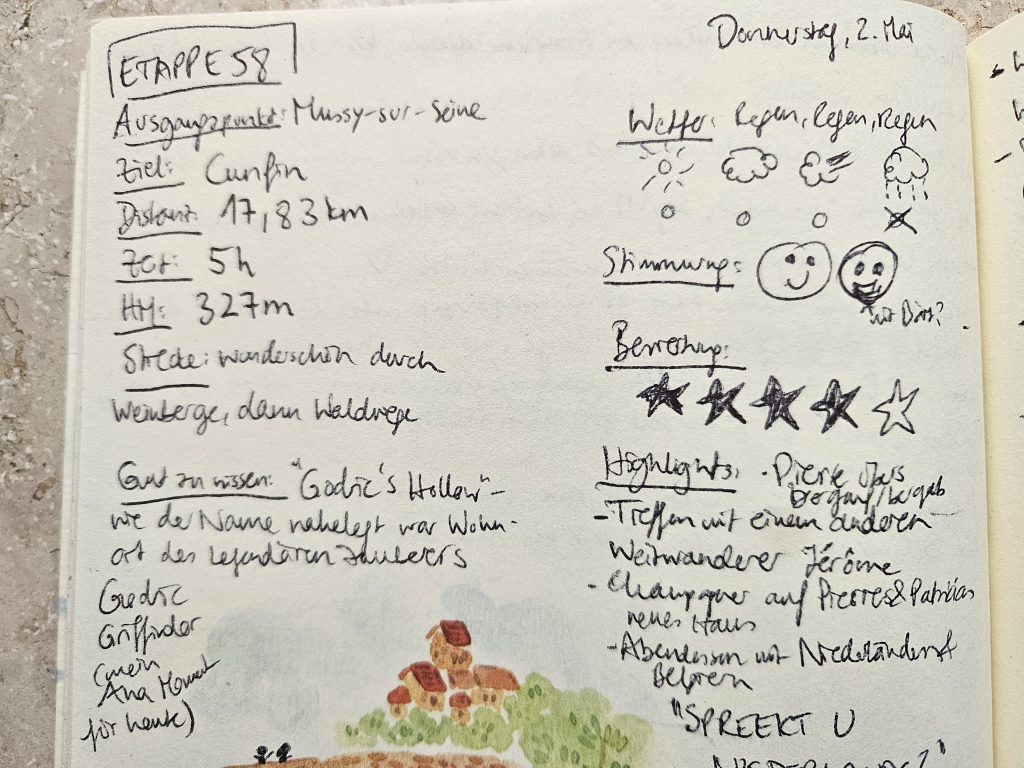 ETAPPE 58
Ausgangspunkt: Mussy-sur-Seine
Ziel: Cunfin
Distanz: 17,83 km
Zeit: 5h
HM: 327m
Strecke: wunderschön durch
Weinberge, dann Waldwege
Gut zu wissen: "Godric's Hollow" -
wie der Name nahelegt war Wohn-
ort des legendären Zauberers
Godric
Griffindor
(mein
Aha Moment
für heute)
Donnerstag, 2. Mai
Wetter: Regen, Regen, Regen
Stimmung:
Bewertung:
Highlights: - Pierre übers
bergauf/bergab
- Treffen mit einem anderen
Weitwanderer Jérôme
- Champagner auf Pierres & Patricias
neues Haus
- Abendessen mit Niederländern &
Belgiern
"SPREEKT U